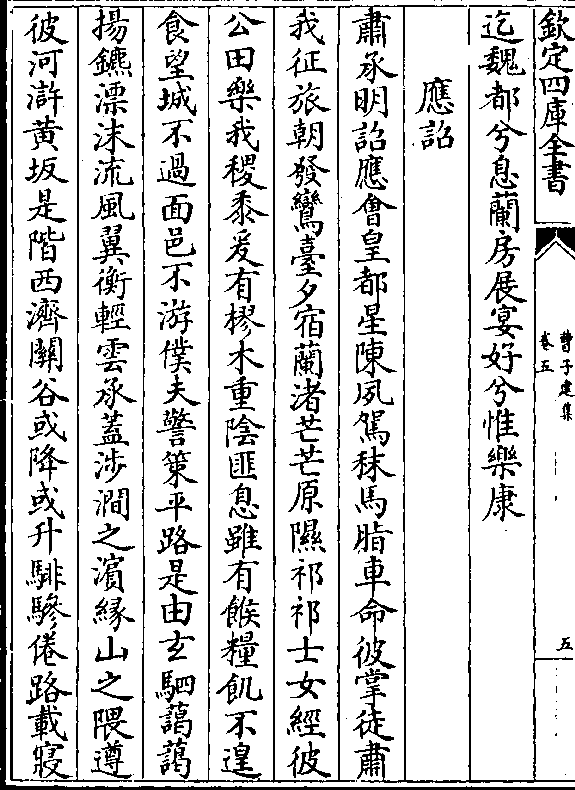 欽定四庫全書
曹子建集
卷五
五
迄魏都兮息蘭房展宴好兮惟樂康
應詔
肅承明詔應會皇都星陳夙駕秣馬脂車命彼掌徒肅
我征旅朝發鸞臺夕宿蘭渚芒芒原隰祁祁士女經彼
公田樂我稷黍爰有樛木重陰匪息雖有餱糧飢不遑
食望城不過面邑不游僕夫警策平路是由玄駟藹藹
揚鑣漂沫流風翼衡輕雲承蓋涉澗之濱緣山之隈遵
彼河滸黃坂是階西濟關谷或降或升騑驂倦路載寢